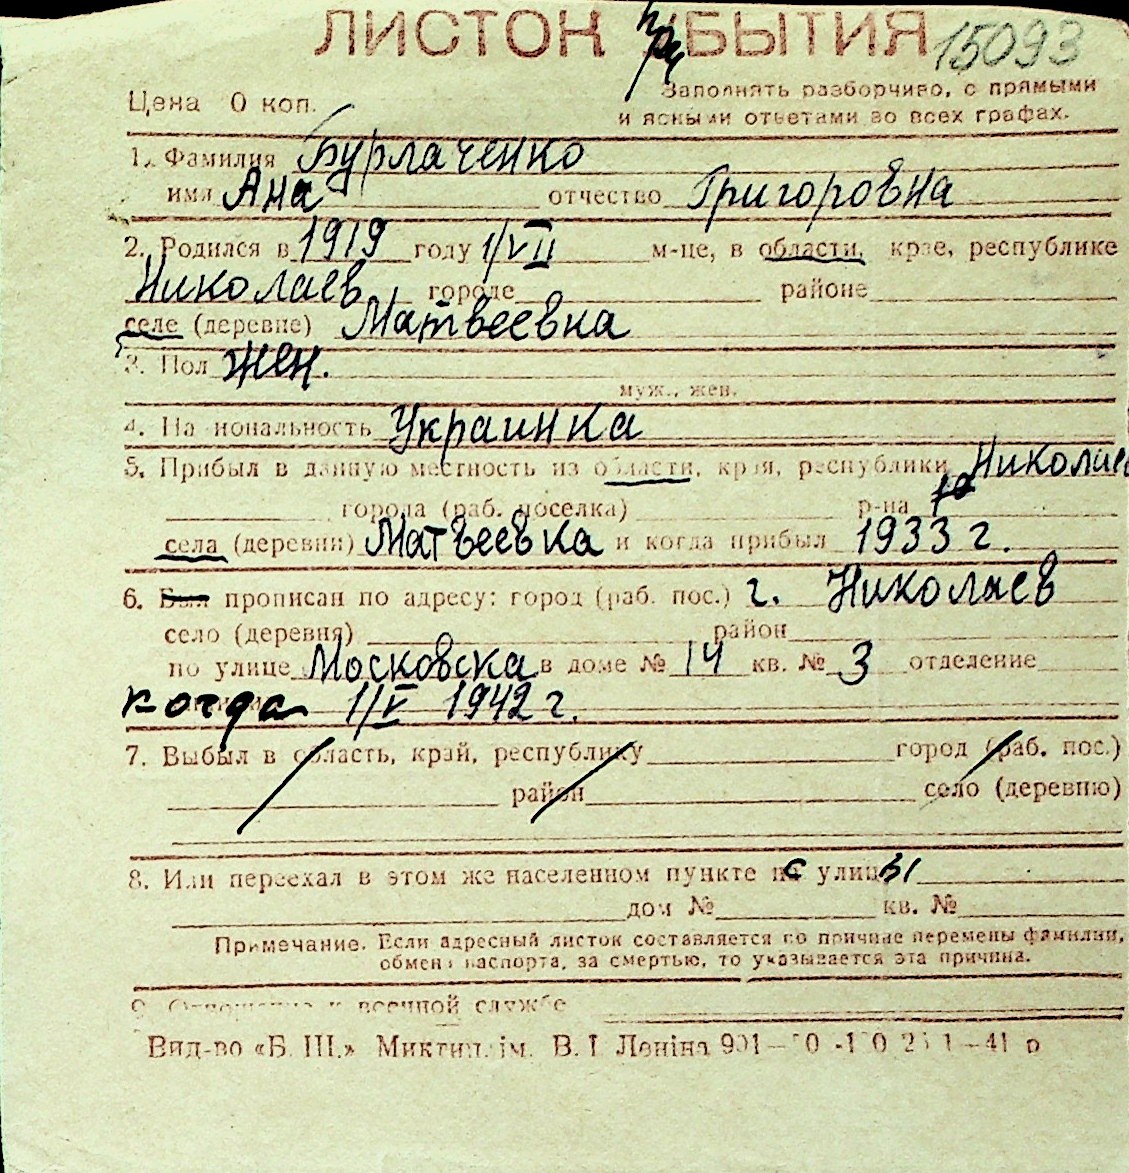 ЛИСТОК ПРИБЫТИЯ 15093
Цена 0 коп.
Заполнять разборчиво, с прямыми
и ясными ответами во всех графах.
1. Фамилия Бурлаченко
имя Ана отчество Григоровна
2. Родился в 1919 году 1/VII м-це, в области, крае, республике
Николаев городе районе
селе (деревне) Матвеевка
3. Пол жен.
муж., жен.
4. Национальность Украинка
5. Прибыл в данную местность из области, края, республики Николаев
города (раб. поселка) р-на
села (деревни) Матвеевка и когда прибыл 1933 г.
6. Был прописан по адресу: город (раб. пос.) г. Николаев
село (деревня) район
по улице Московска в доме № 14 кв. № 3 отделение
когда 1/V 1942 г.
7. Выбыл в область, край, республику город (раб. пос.)
район село (деревню)
8. Или переехал в этом же населенном пункте с улицы
дом № кв. №
Примечание. Если адресный листок составляется по причине перемены фамилии,
обмена паспорта, за смертью, то указывается эта причина.
9. Отношение к военной службе
Вид-во «Б. Ш.» Миктип. ім. В. І. Леніна